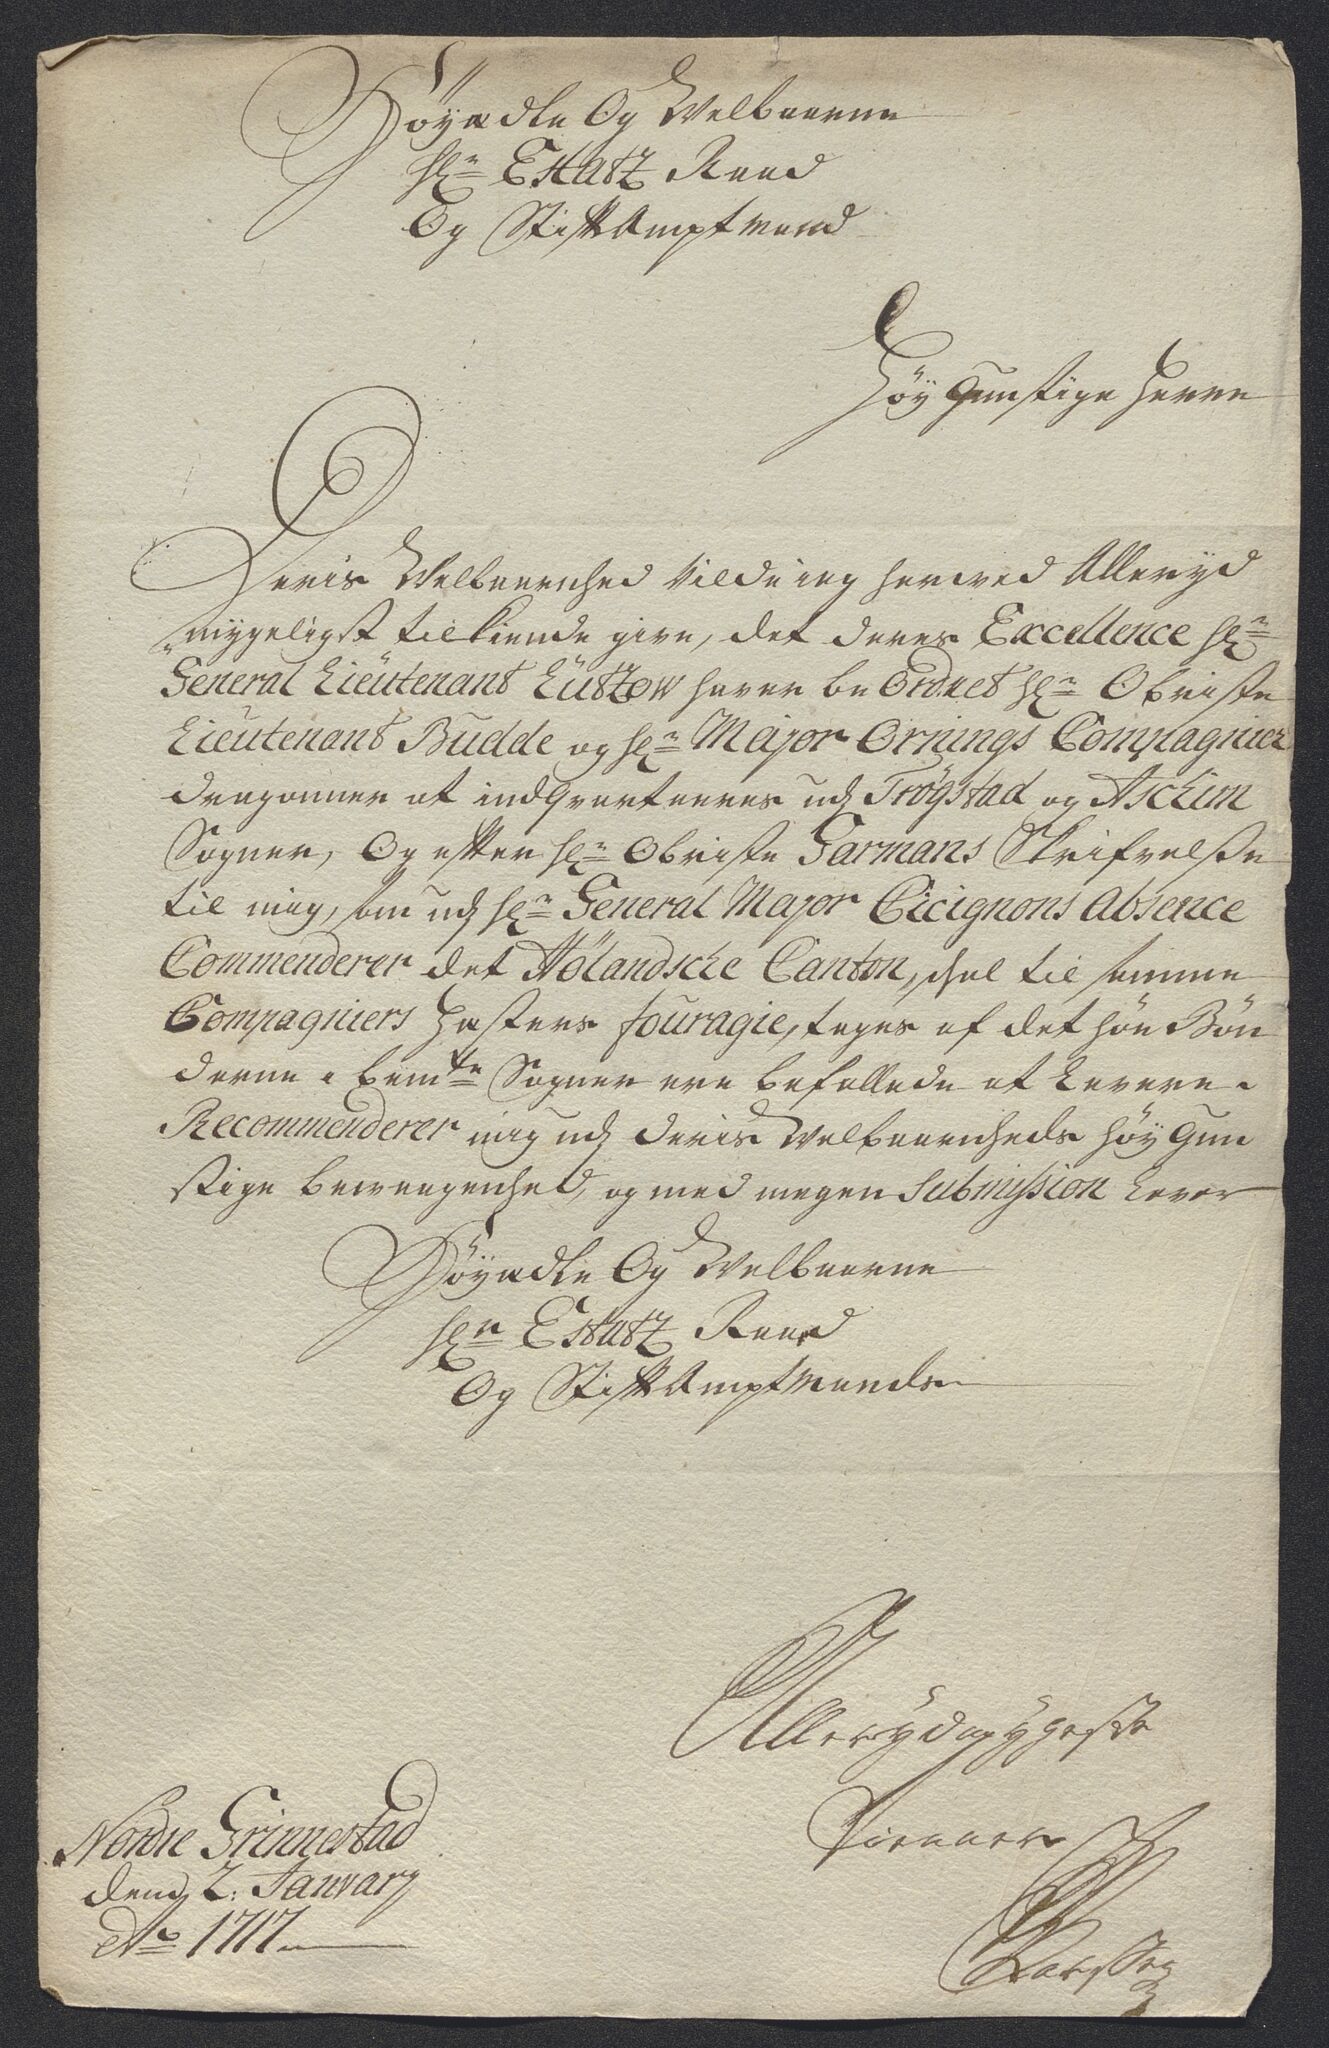 Høyædle Og Welbaarne
Hr Estatz Raad
Og StiftAmptmand
Høygunstige Herre
Deris Welbaarenhed vilde ieg herved Allerÿd
mygeligst tilkiende give, det deres Excellence Hr
General Lieutenant Lützow haver beOrdret Hr Obriste
Lieutenant Budde og Hr Major Ornings Compagnier
dragonner at indqvarteeres udj Trögstad og Aschim
Sogner, Og efter Hr Obriste Garmans Skrifvelsse
til mig, som udj Hr General Major Cicignons Absence
Commenderer det Hölandsche Canton, skal til samme
Compagniers hæsters fouragie, tages af det høe Bøn
derne i bemte Sogner ere befallede at levere.
Recommenderer mig udj deris Welbaarenheds høygun
stige bevaagenhed, og med megen Submission lever
Høyædle Og Welbaarne
Hr Estatz Raad
Og StiftAmptmands
Allerÿdmygeste
Tienner
Nordre Grinnestad
denj 2. January
Ao 1717